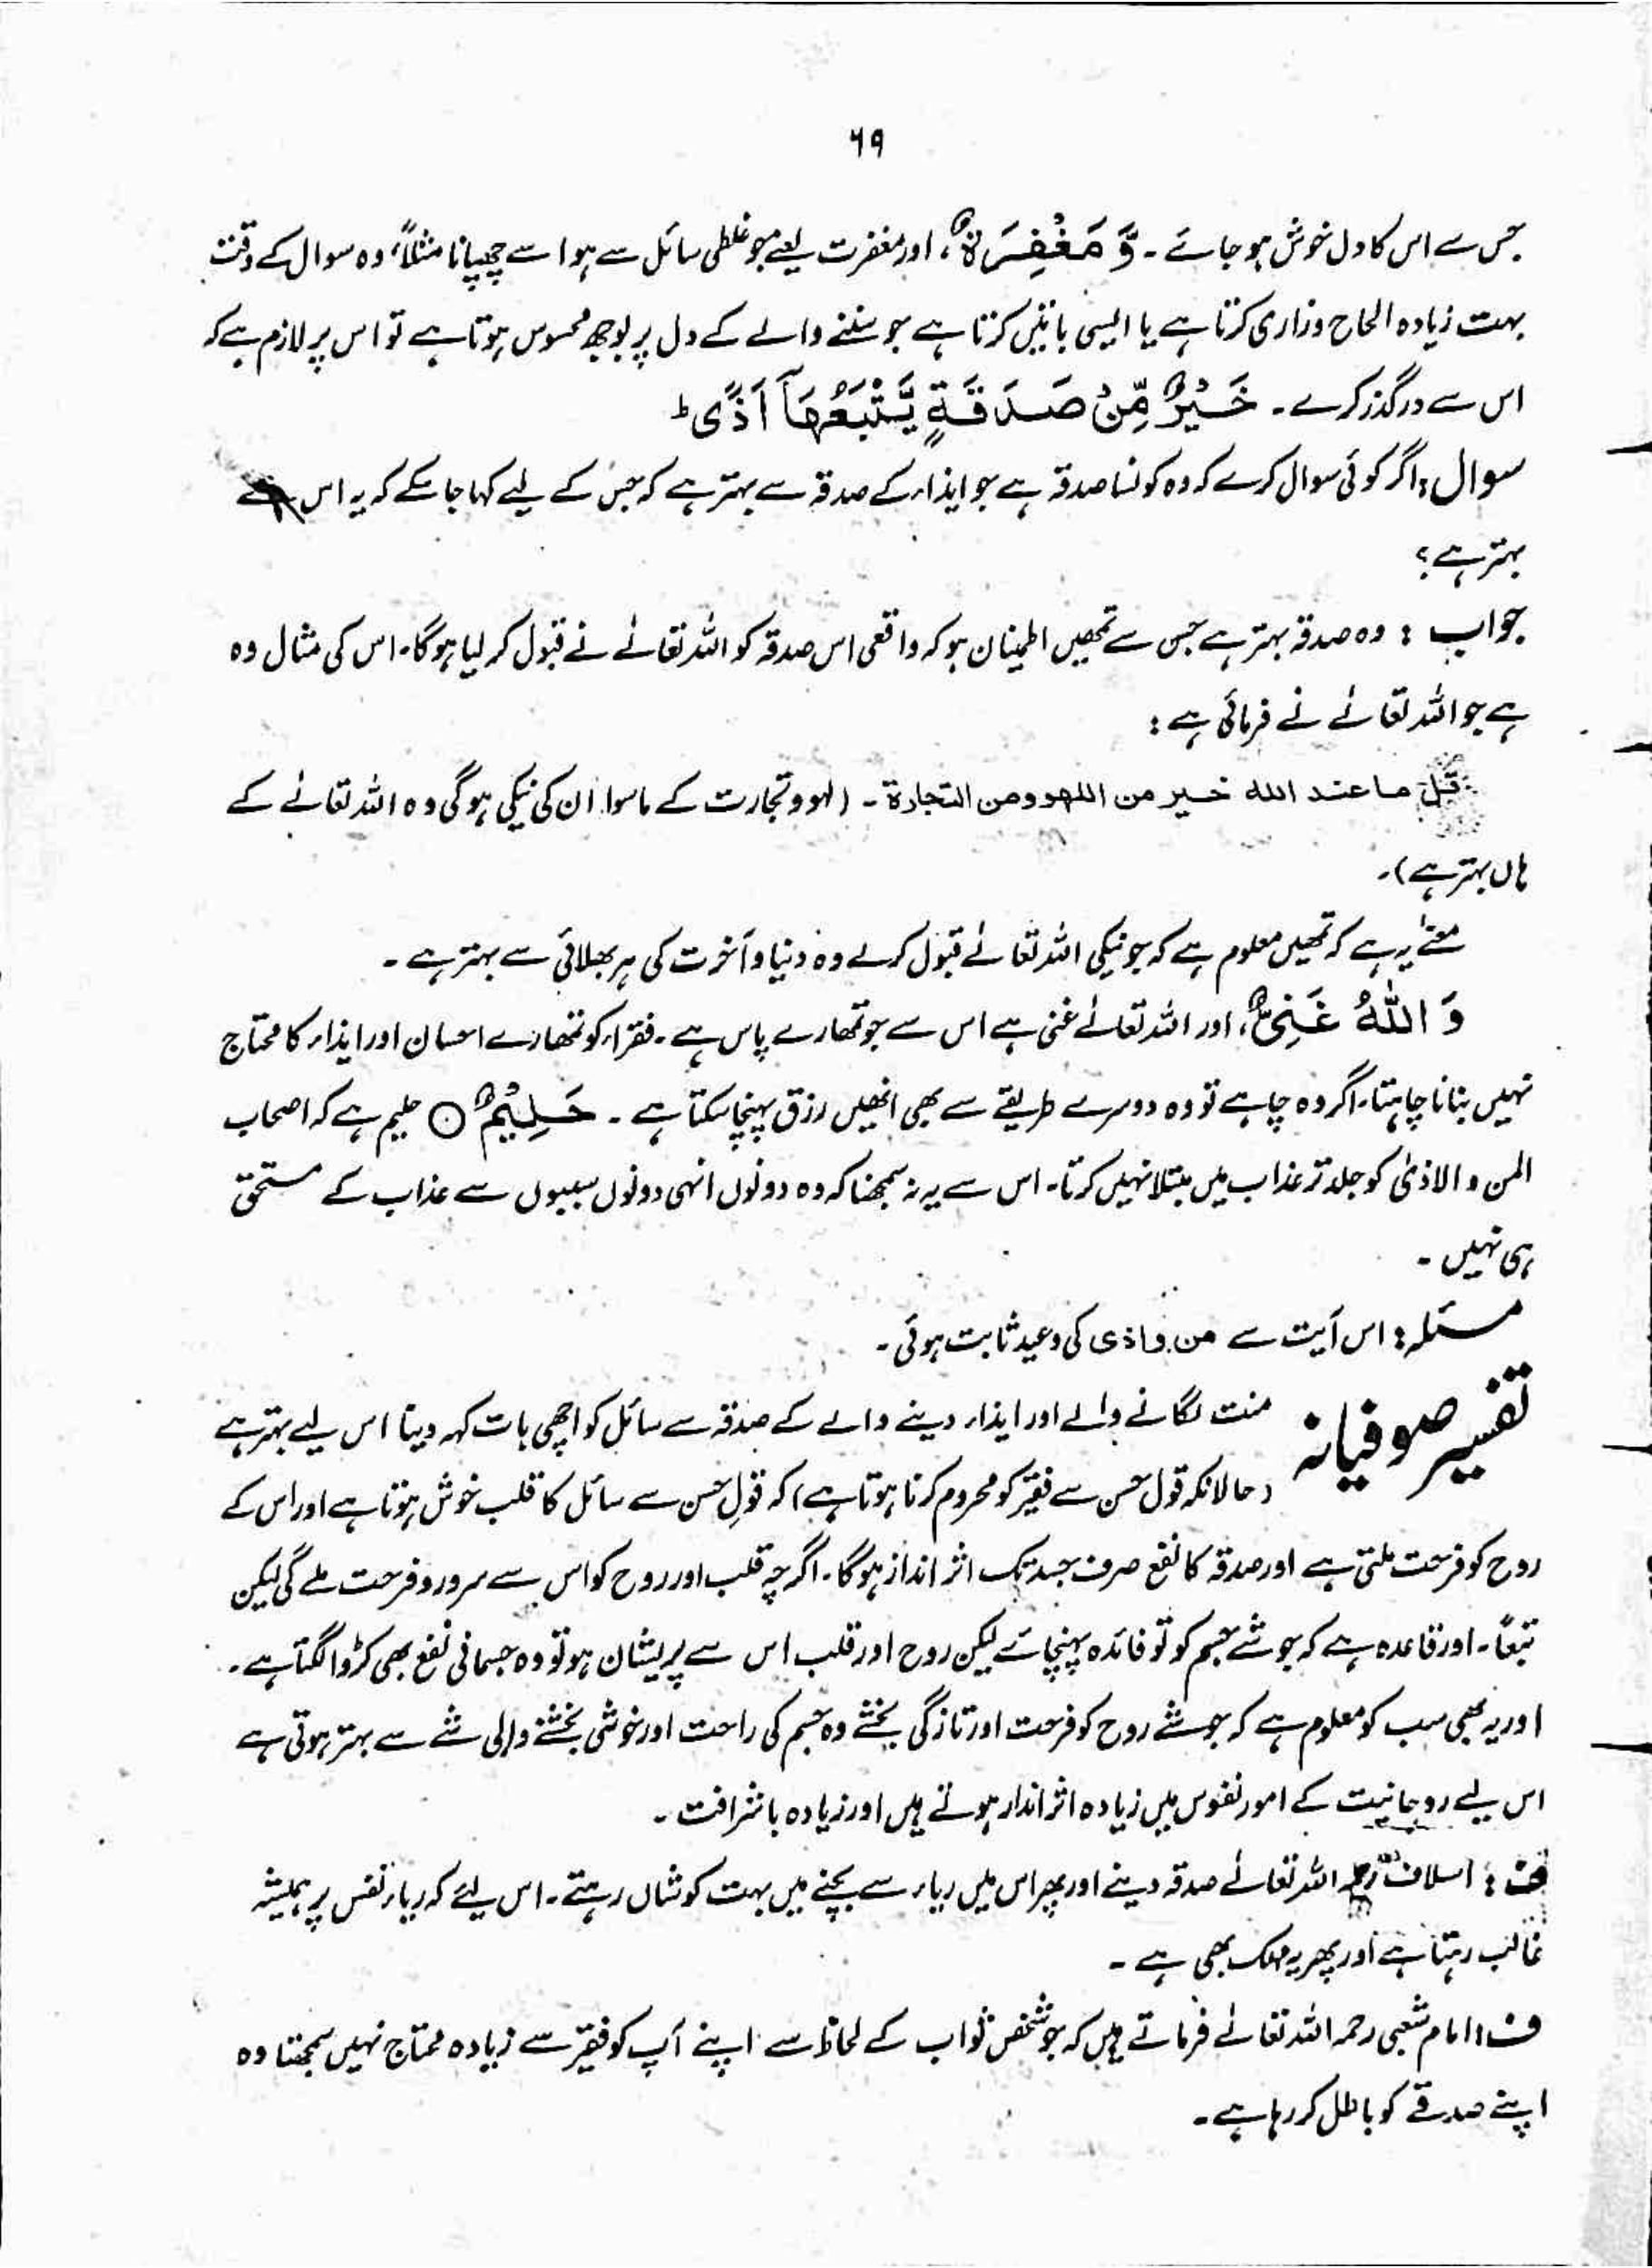 ۶۹
جس سے اس کا دل خوش ہو جائے ۔ وَّ مَغْفِرَةٌ ، اور مغفرت یعنے جو غلطی سائل سے ہو اسے چھپانا مثلاً، وہ سوال کے وقت
بہت زیادہ الحاح وزاری کرتا ہے یا ایسی باتیں کرتا ہے جو سننے والے کے دل پر بوجھ محسوس ہوتا ہے تو اس پر لازم ہے کہ
اس سے درگذر کرے ۔ خَیْرٌ مِّنْ صَدَقَةٍ یَّتْبَعُهَاۤ اَذًی ؕ
سوال : اگر کوئی سوال کرے کہ وہ کونسا صدقہ ہے جو ایذاء کے صدقہ سے بہتر ہے کہ جس کے لیے کہا جا سکے کہ یہ اس سے
بہتر ہے ؟
جواب : وہ صدقہ بہتر ہے جس سے تمھیں اطمینان ہو کہ واقعی اس صدقہ کو اللہ تعالےٰ نے قبول کر لیا ہوگا۔ اس کی مثال وہ
ہے جو اللہ تعالےٰ نے فرمائی ہے :
قل ما عند الله خیر من اللهو ومن التجارة ۔ (لہو و تجارت کے ماسوا ان کی نیکی ہوگی وہ اللہ تعالےٰ کے
ہاں بہتر ہے)۔
معنےٰ یہ ہے کہ تمھیں معلوم ہے کہ جو نیکی اللہ تعالےٰ قبول کرلے وہ دنیا و آخرت کی ہر بھلائی سے بہتر ہے ۔
وَ اللّٰهُ غَنِیٌّ ، اور اللہ تعالےٰ غنی ہے اس سے جو تمھارے پاس ہے ۔ فقراء کو تمھارے احسان اور ایذاء کا محتاج
نہیں بنانا چاہتا۔ اگر وہ چاہے تو وہ دوسرے طریقے سے بھی انھیں رزق پہنچا سکتا ہے ۔ حَلِیْمٌ ○ حلیم ہے کہ اصحاب
المن و الاذیٰ کو جلد تر عذاب میں مبتلا نہیں کرتا۔ اس سے یہ نہ سمجھنا کہ وہ دونوں انہی دونوں سببوں سے عذاب کے مستحق
ہی نہیں ۔
مسئلہ : اس آیت سے من و اذی کی وعید ثابت ہوئی ۔
تفسیر صوفیانہ منت لگانے والے اور ایذاء دینے والے کے صدقہ سے سائل کو اچھی بات کہہ دینا اس لیے بہتر ہے
(حالانکہ قول حسن سے فقیر کو محروم کرنا ہوتا ہے) کہ قولِ حسن سے سائل کا قلب خوش ہوتا ہے اور اس کے
روح کو فرحت ملتی ہے اور صدقہ کا نفع صرف جسد تک اثر انداز ہوگا۔ اگرچہ قلب اور روح کو اس سے سرور و فرحت ملے گی لیکن
تبعًا۔ اور قاعدہ ہے کہ جو شے جسم کو تو فائدہ پہنچائے لیکن روح اور قلب اس سے پریشان ہو تو وہ جسمانی نفع بھی کڑوا لگتا ہے ۔
اور یہ بھی سب کو معلوم ہے کہ جو شے روح کو فرحت اور تازگی بخشے وہ جسم کی راحت اور خوشی بخشنے والی شے سے بہتر ہوتی ہے
اس لیے روحانیت کے امور نفوس میں زیادہ اثر انداز ہوتے ہیں اور زیادہ باشرافت ۔
ف : اسلاف رحمہم اللہ تعالےٰ صدقہ دینے اور پھر اس میں ریاء سے بچنے میں بہت کوشاں رہتے ۔ اس لیے کہ ریاء نفس پر ہمیشہ
غالب رہتا ہے اور پھر یہ مہلک بھی ہے ۔
ف : امام شعبی رحمہ اللہ تعالےٰ فرماتے ہیں کہ جو شخص ثواب کے لحاظ سے اپنے آپ کو فقیر سے زیادہ محتاج نہیں سمجھتا وہ
اپنے صدقے کو باطل کر رہا ہے ۔